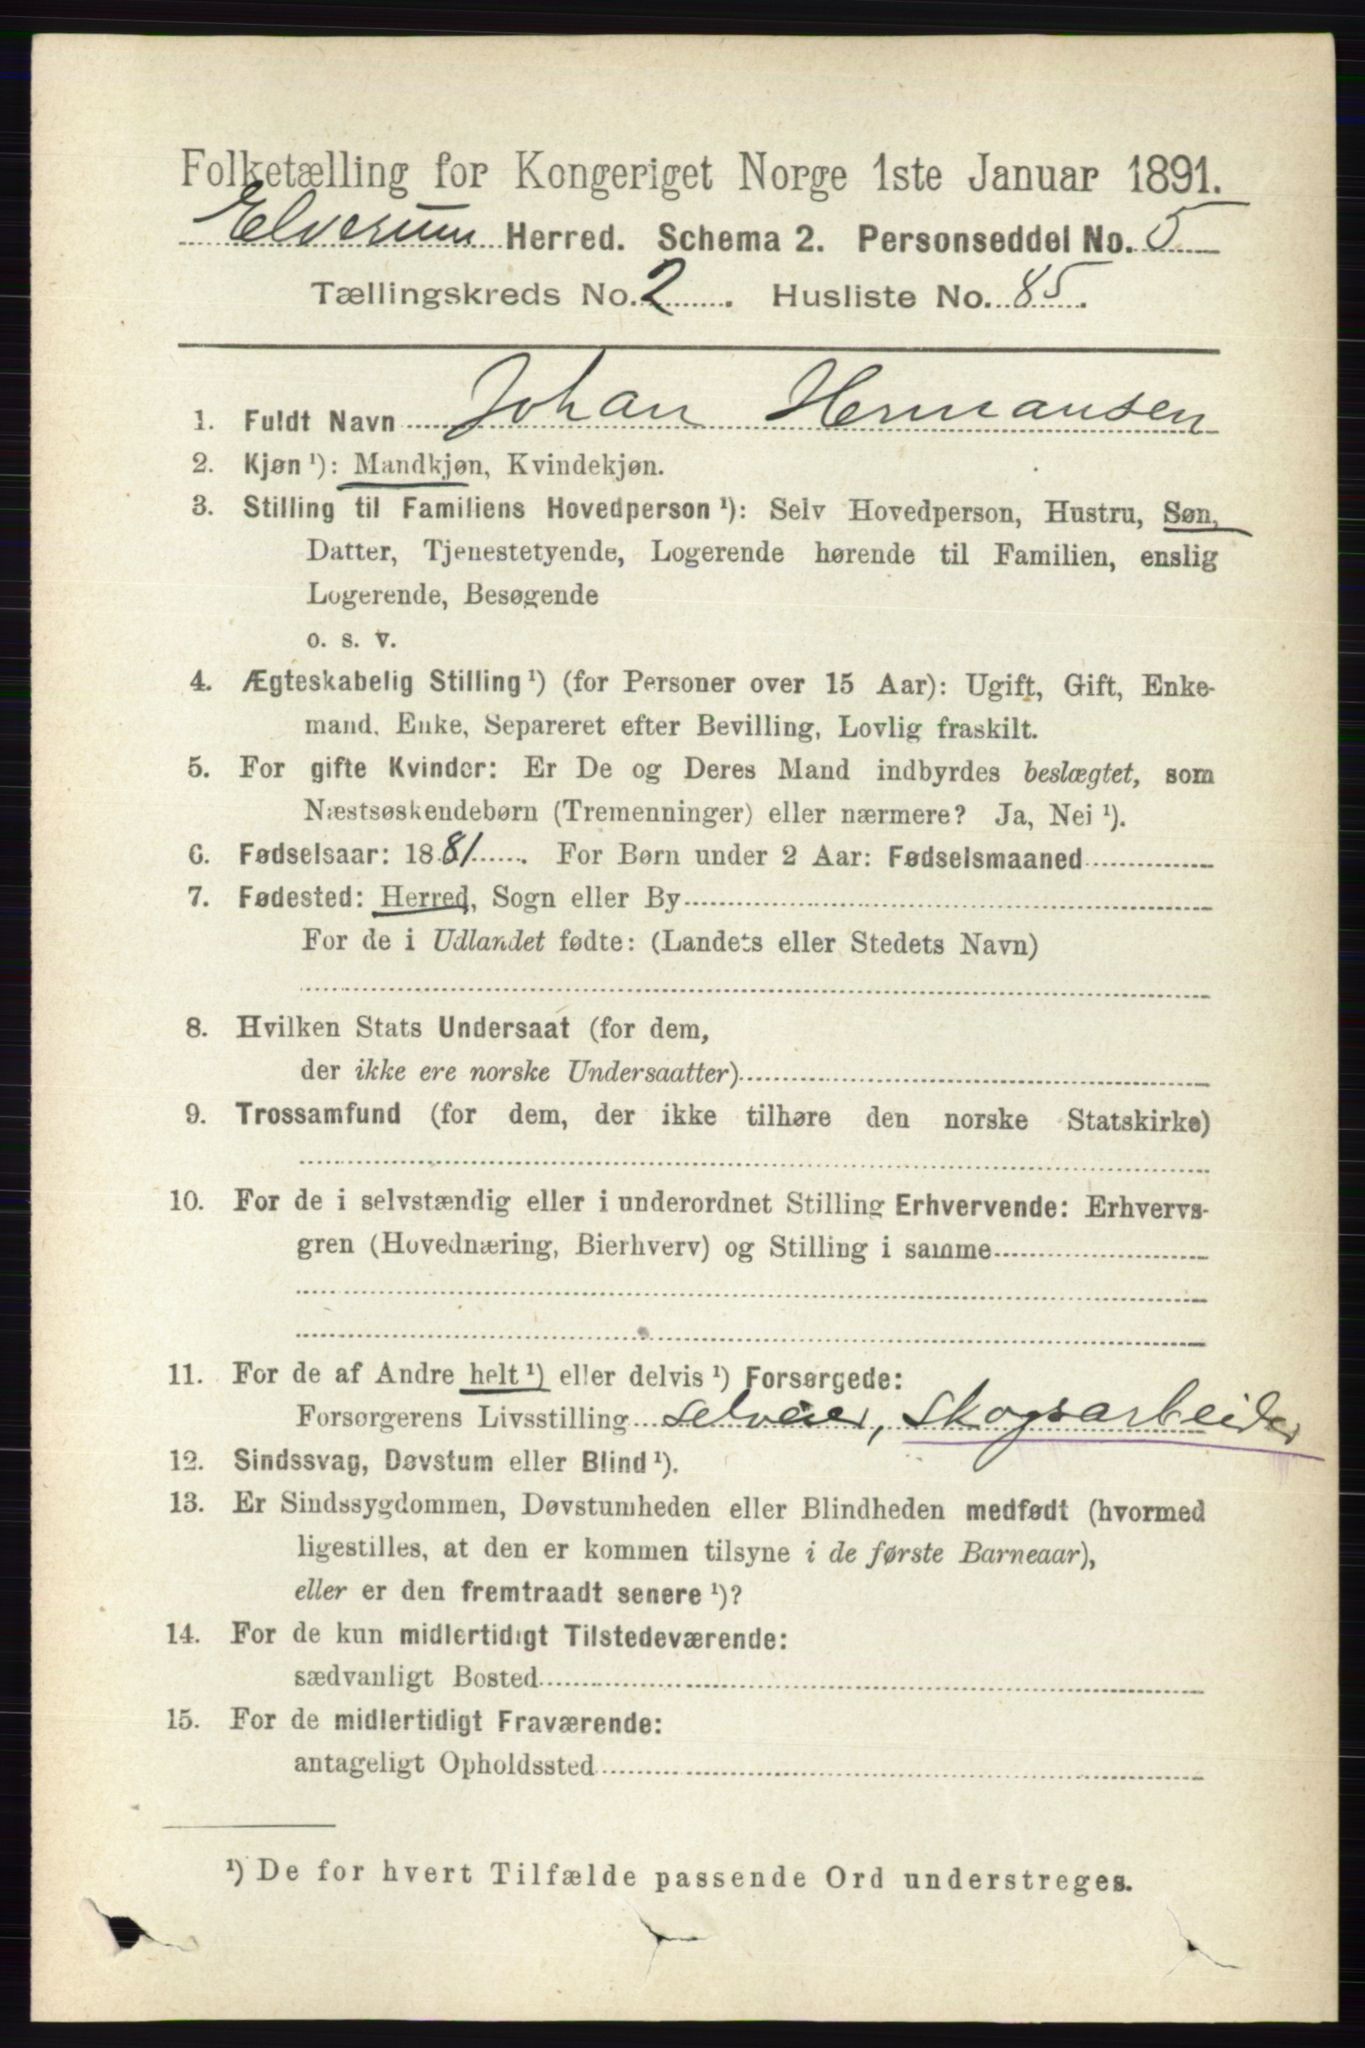 Folketælling for Kongeriget Norge 1ste Januar 1891.
Elverum Herred. Schema 2. Personseddel No. 5
Tællingskreds No. 2. Husliste No. 85.
1. Fuldt Navn Johan Hermansen
2. Kjøn ¹): Mandkjøn, Kvindekjøn.
3. Stilling til Familiens Hovedperson ¹): Selv Hovedperson, Hustru, Søn,
Datter, Tjenestetyende, Logerende hørende til Familien, enslig
Logerende, Besøgende
o. s. v.
4. Ægteskabelig Stilling ¹) (for Personer over 15 Aar): Ugift, Gift, Enke-
mand, Enke, Separeret efter Bevilling, Lovlig fraskilt.
5. For gifte Kvinder: Er De og Deres Mand indbyrdes beslægtet, som
Næstsøskendebørn (Tremenninger) eller nærmere? Ja, Nei ¹).
6. Fødselsaar: 1881. For Børn under 2 Aar: Fødselsmaaned
7. Fødested: Herred, Sogn eller By
For de i Udlandet fødte: (Landets eller Stedets Navn)
8. Hvilken Stats Undersaat (for dem,
der ikke ere norske Undersaatter)
9. Trossamfund (for dem, der ikke tilhøre den norske Statskirke)
10. For de i selvstændig eller i underordnet Stilling Erhvervende: Erhvervs-
gren (Hovednæring, Bierhverv) og Stilling i samme
11. For de af Andre helt ¹) eller delvis ¹) Forsørgede:
Forsørgerens Livsstilling selveier, skogsarbeider
12. Sindssvag, Døvstum eller Blind ¹).
13. Er Sindssygdommen, Døvstumheden eller Blindheden medfødt (hvormed
ligestilles, at den er kommen tilsyne i de første Barneaar),
eller er den fremtraadt senere ¹)?
14. For de kun midlertidigt Tilstedeværende:
sædvanligt Bosted
15. For de midlertidigt Fraværende:
antageligt Opholdssted
¹) De for hvert Tilfælde passende Ord understreges.